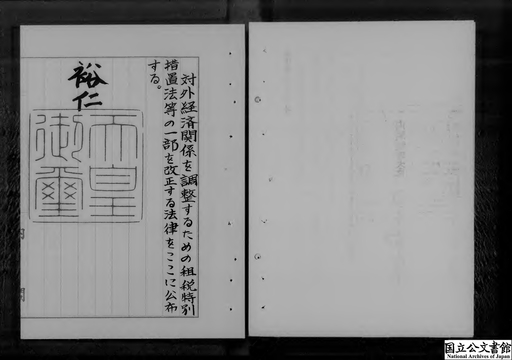 対外経済関係を調整するための租税特別
措置法等の一部を改正する法律をここに公布
する。
裕仁
天皇
御璽
国立公文書館
National Archives of Japan